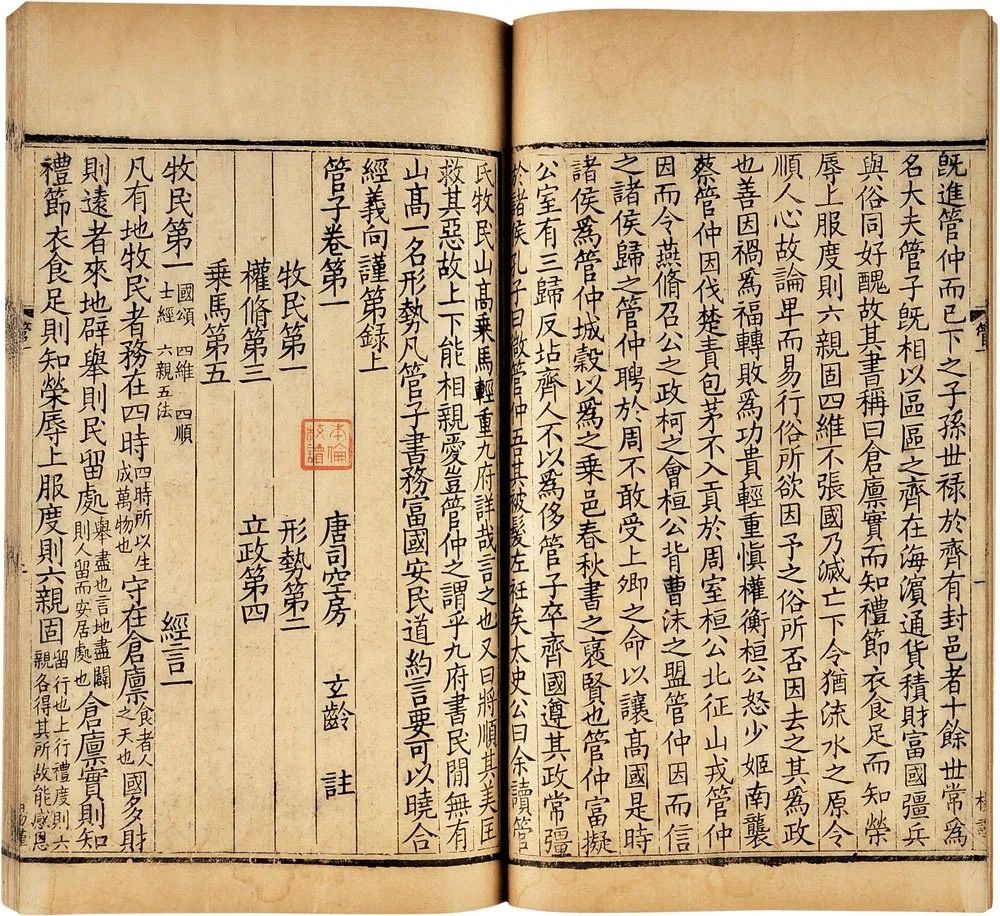 既進管仲而已下之子孫世禄於齊有封邑者十餘世常爲
名大夫管子既相以區區之齊在海濱通貨積財富國彊兵
與俗同好醜故其書稱曰倉廪實而知禮節衣食足而知榮
辱上服度則六親固四維不張國乃滅亡下令猶流水之原令
順人心故論卑而易行俗所欲因予之俗所否因去之其爲政
也善因禍爲福轉敗爲功貴輕重慎權衡桓公怒少姬南襲
蔡管仲因伐楚責包茅不入貢於周室桓公北征山戎管仲
因而令燕脩召公之政柯之會桓公背曹沫之盟管仲因而信
之諸侯歸之管仲聘於周不敢受上卿之命以讓髙國是時
諸侯爲管仲城糓以爲之乗邑春秋書之襃賢也管仲富擬
公室有三歸反坫齊人不以爲侈管子卒齊國遵其政常彊
於諸侯孔子曰微管仲吾其被髮左衽矣太史公曰余讀管
氏牧民山髙乗馬輕重九府詳哉言之也又曰將順其美匡
救其惡故上下能相親愛豈管仲之謂乎九府書民閒無有
山髙一名形勢凡管子書務富國安民道約言要可以曉合
經義向謹第録上
管子卷第一 唐司空房 玄齡 註
牧民第一 形勢第二
權脩第三 立政第四
乗馬第五
牧民第一 國頌 四維 四順 士經 六親五法 經言一
凡有地牧民者務在四時 四時所以生成萬物也 守在倉廪 食者人之天也 國多財
則遠者來地辟舉則民留處 舉盡也言地盡闢則人留而安居處也 倉廪實則知
禮節衣食足則知榮辱上服度則六親固 留行也上行禮度則六親各得其所故能感恩
管一